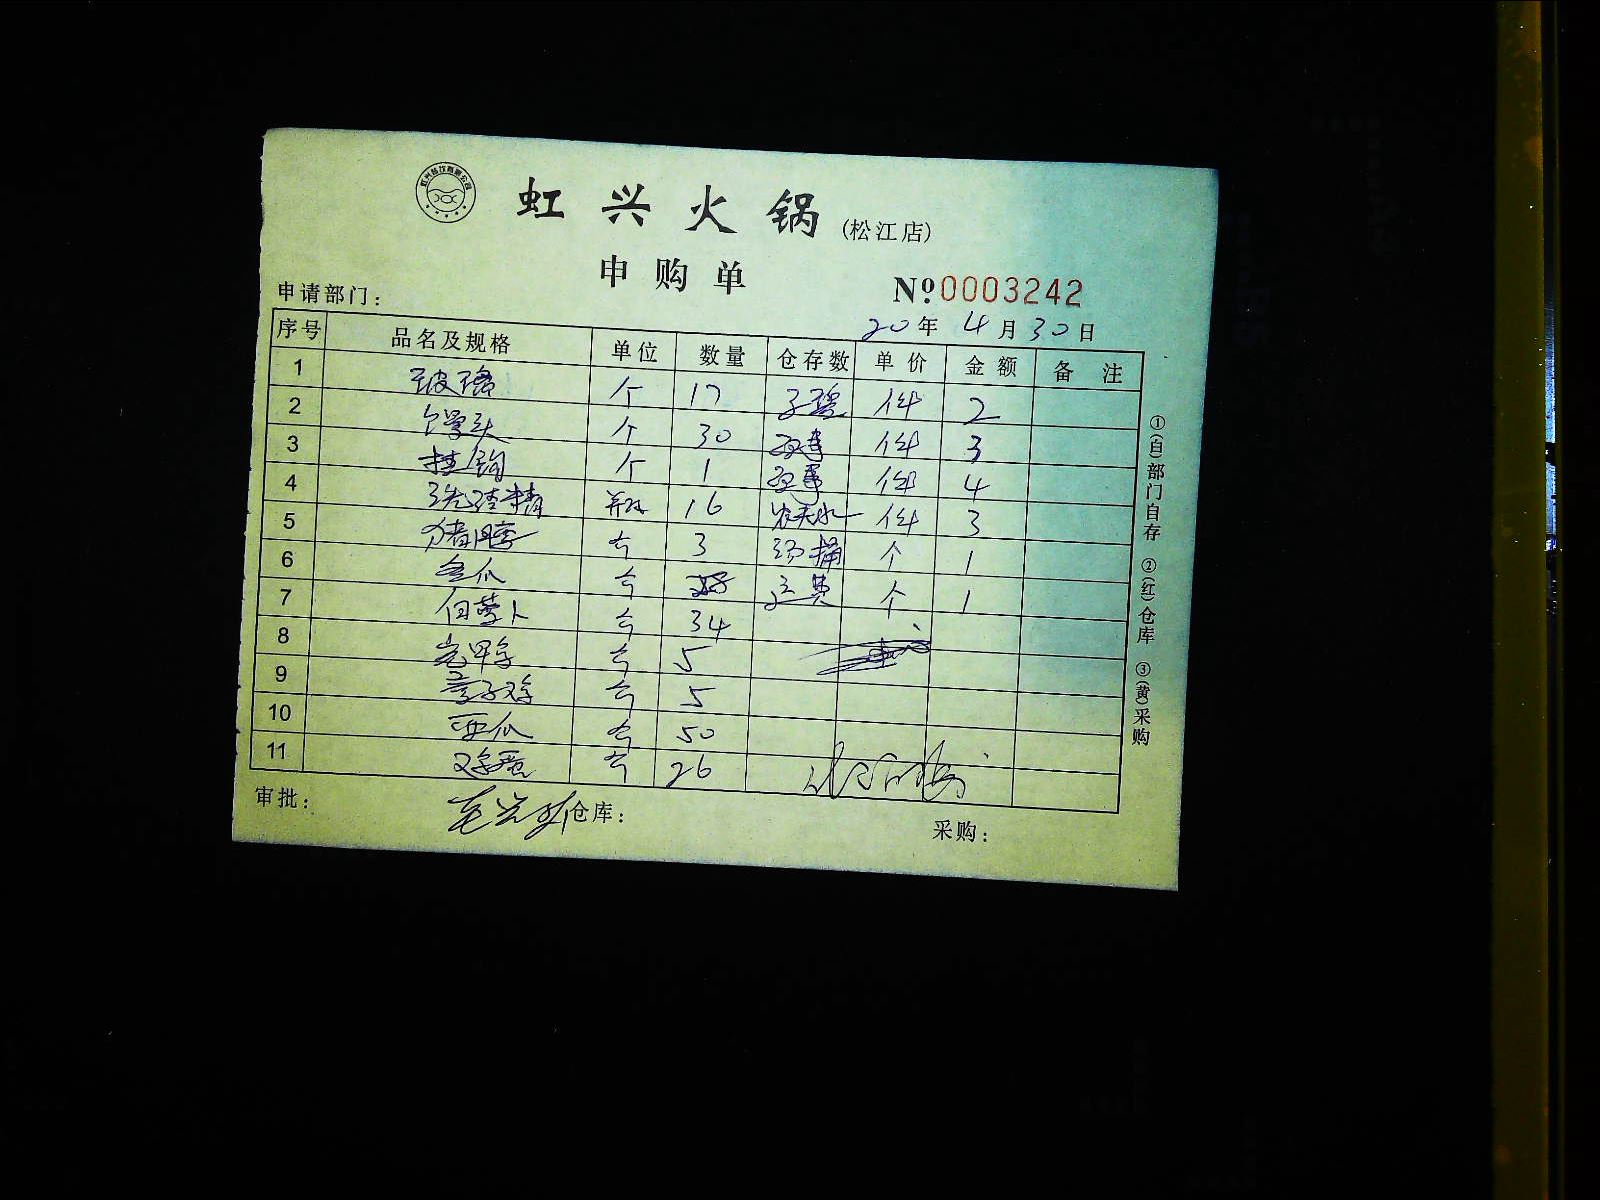 虹兴火锅 (松江店)
申购单
№0003242
申请部门:
20年 4月30日
序号 品名及规格 单位 数量 仓存数 单价 金额 备注
1 玻璃 个 17 件 2
2 馒头 个 30 件 3
3 挂钩 个 1 件 4
4 洗洁精 瓶 16 农夫水 件 3
5 3 个 1
6 冬瓜 斤 运费 个 1
7 白萝卜 斤 34
8 斤 5
9 童子鸡 斤 5
10 西瓜 斤 50
11 鸡蛋 斤 26
审批: 仓库: 采购:
①(白)部门自存 ②(红)仓库 ③(黄)采购